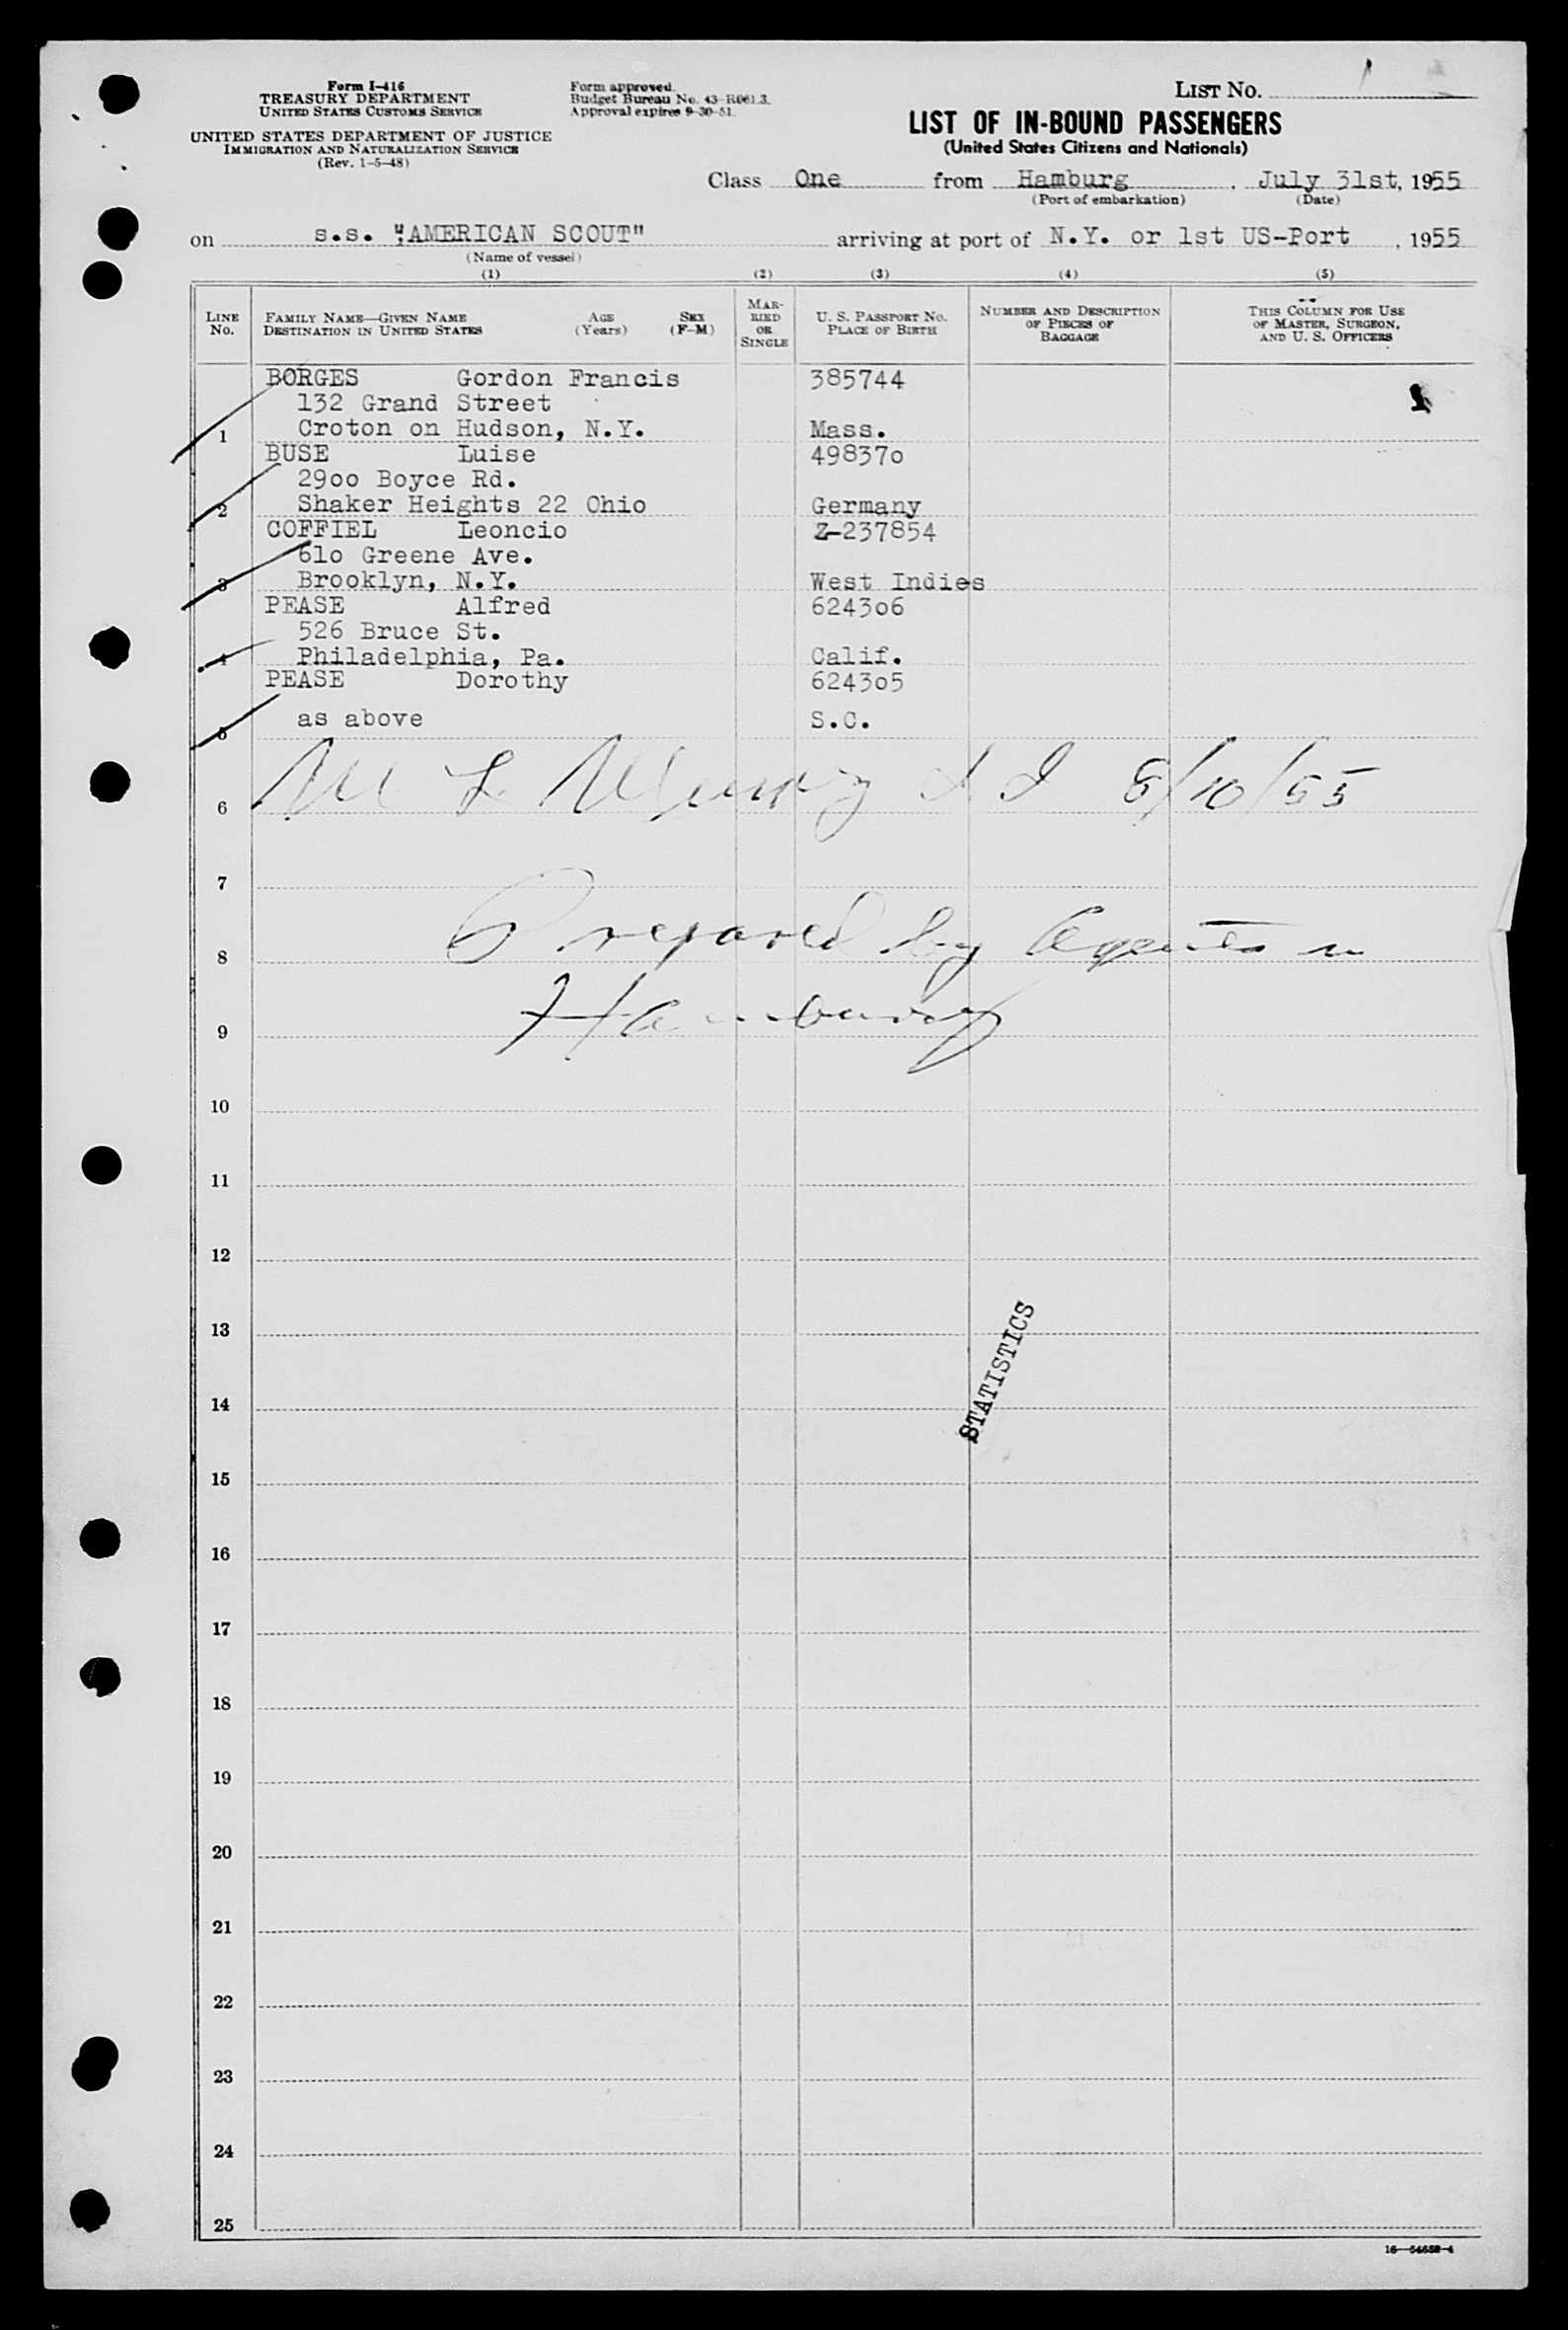 Form I-416
TREASURY DEPARTMENT
UNITED STATES CUSTOMS SERVICE
UNITED STATES DEPARTMENT OF JUSTICE
IMMIGRATION AND NATURALIZATION SERVICE
(Rev. 1-5-48)
Form approved.
Budget Bureau No. 43-R061.3.
Approval expires 9-30-51.
LIST No. 1
LIST OF IN-BOUND PASSENGERS
(United States Citizens and Nationals)
Class One from Hamburg, July 31st, 1955
(Port of embarkation) (Date)
on s.s. "AMERICAN SCOUT" arriving at port of N.Y. or 1st US-Port, 1955
(Name of vessel)
(1) (2) (3) (4) (5)
LINE No.
FAMILY NAME—GIVEN NAME AGE SEX
DESTINATION IN UNITED STATES (Years) (F-M)
MAR-RIED OR SINGLE
U. S. PASSPORT No.
PLACE OF BIRTH
NUMBER AND DESCRIPTION OF PIECES OF BAGGAGE
THIS COLUMN FOR USE OF MASTER, SURGEON, AND U. S. OFFICERS
BORGES Gordon Francis 385744
132 Grand Street
1 Croton on Hudson, N.Y. Mass.
BUSE Luise 498370
2900 Boyce Rd.
2 Shaker Heights 22 Ohio Germany
COFFIEL Leoncio Z-237854
610 Greene Ave.
3 Brooklyn, N.Y. West Indies
PEASE Alfred 624306
526 Bruce St.
4 Philadelphia, Pa. Calif.
PEASE Dorothy 624305
5 as above S.C.
6 8/10/55
7
8 Prepared by Agents in
9 Hamburg
10
11
12
13
STATISTICS
14
15
16
17
18
19
20
21
22
23
24
25